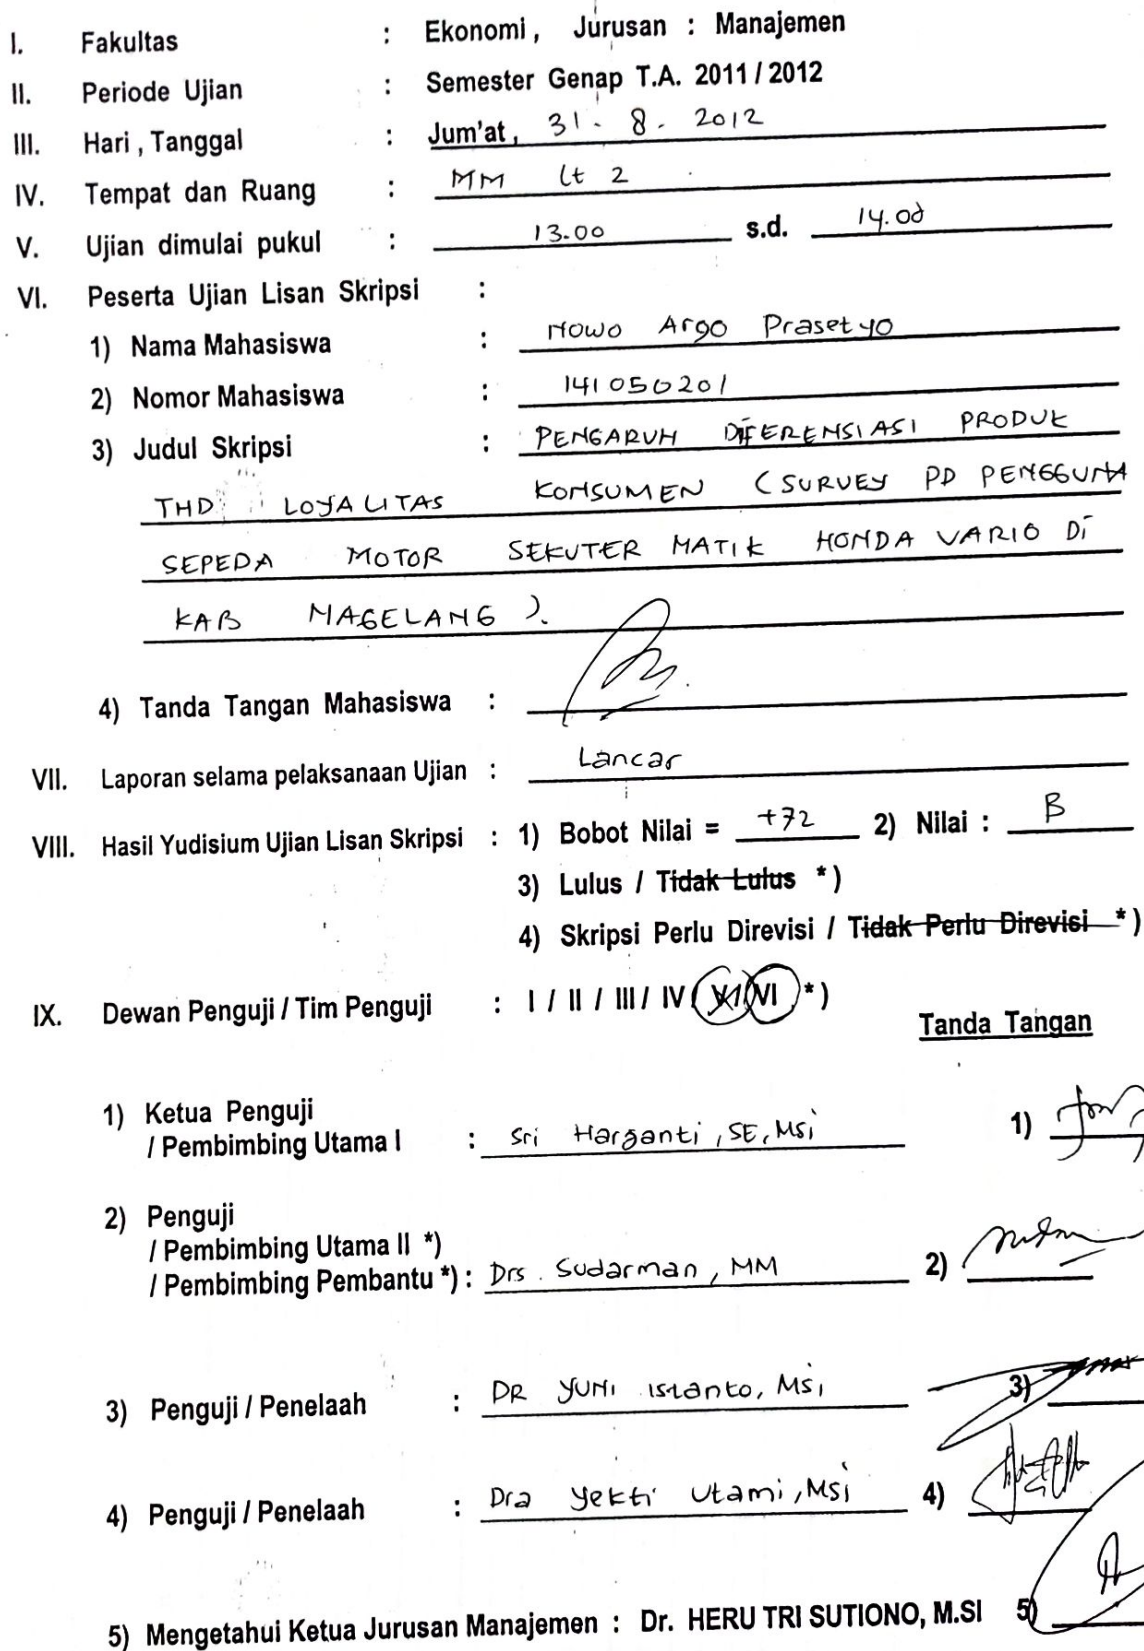 I. Fakultas : Ekonomi, Jurusan : Manajemen
II. Periode Ujian : Semester Genap T.A. 2011 / 2012
III. Hari, Tanggal : Jum'at, 31 - 8 - 2012
IV. Tempat dan Ruang : MM Lt 2
V. Ujian dimulai pukul : 13.00 s.d. 14.00
VI. Peserta Ujian Lisan Skripsi :
1) Nama Mahasiswa : Nowo Argo Prasetyo
2) Nomor Mahasiswa : 141050201
3) Judul Skripsi : PENGARUH DIFERENSIASI PRODUK
THD LOYALITAS KONSUMEN (SURVEY PD PENGGUNA
SEPEDA MOTOR SEKUTER MATIK HONDA VARIO Di
KAB MAGELANG ).
4) Tanda Tangan Mahasiswa :
VII. Laporan selama pelaksanaan Ujian : Lancar
VIII. Hasil Yudisium Ujian Lisan Skripsi : 1) Bobot Nilai = +72 2) Nilai : B
3) Lulus / Tidak Lulus *)
4) Skripsi Perlu Direvisi / Tidak Perlu Direvisi *)
IX. Dewan Penguji / Tim Penguji : I / II / III / IV / VI *)
Tanda Tangan
1) Ketua Penguji
/ Pembimbing Utama I : Sri Harjanti, SE, Msi 1)
2) Penguji
/ Pembimbing Utama II *)
/ Pembimbing Pembantu *) : Drs. Sudarman, MM 2)
3) Penguji / Penelaah : DR YUNI Istanto, Msi 3)
4) Penguji / Penelaah : Dra Yekti Utami, Msi 4)
5) Mengetahui Ketua Jurusan Manajemen : Dr. HERU TRI SUTIONO, M.SI 5)